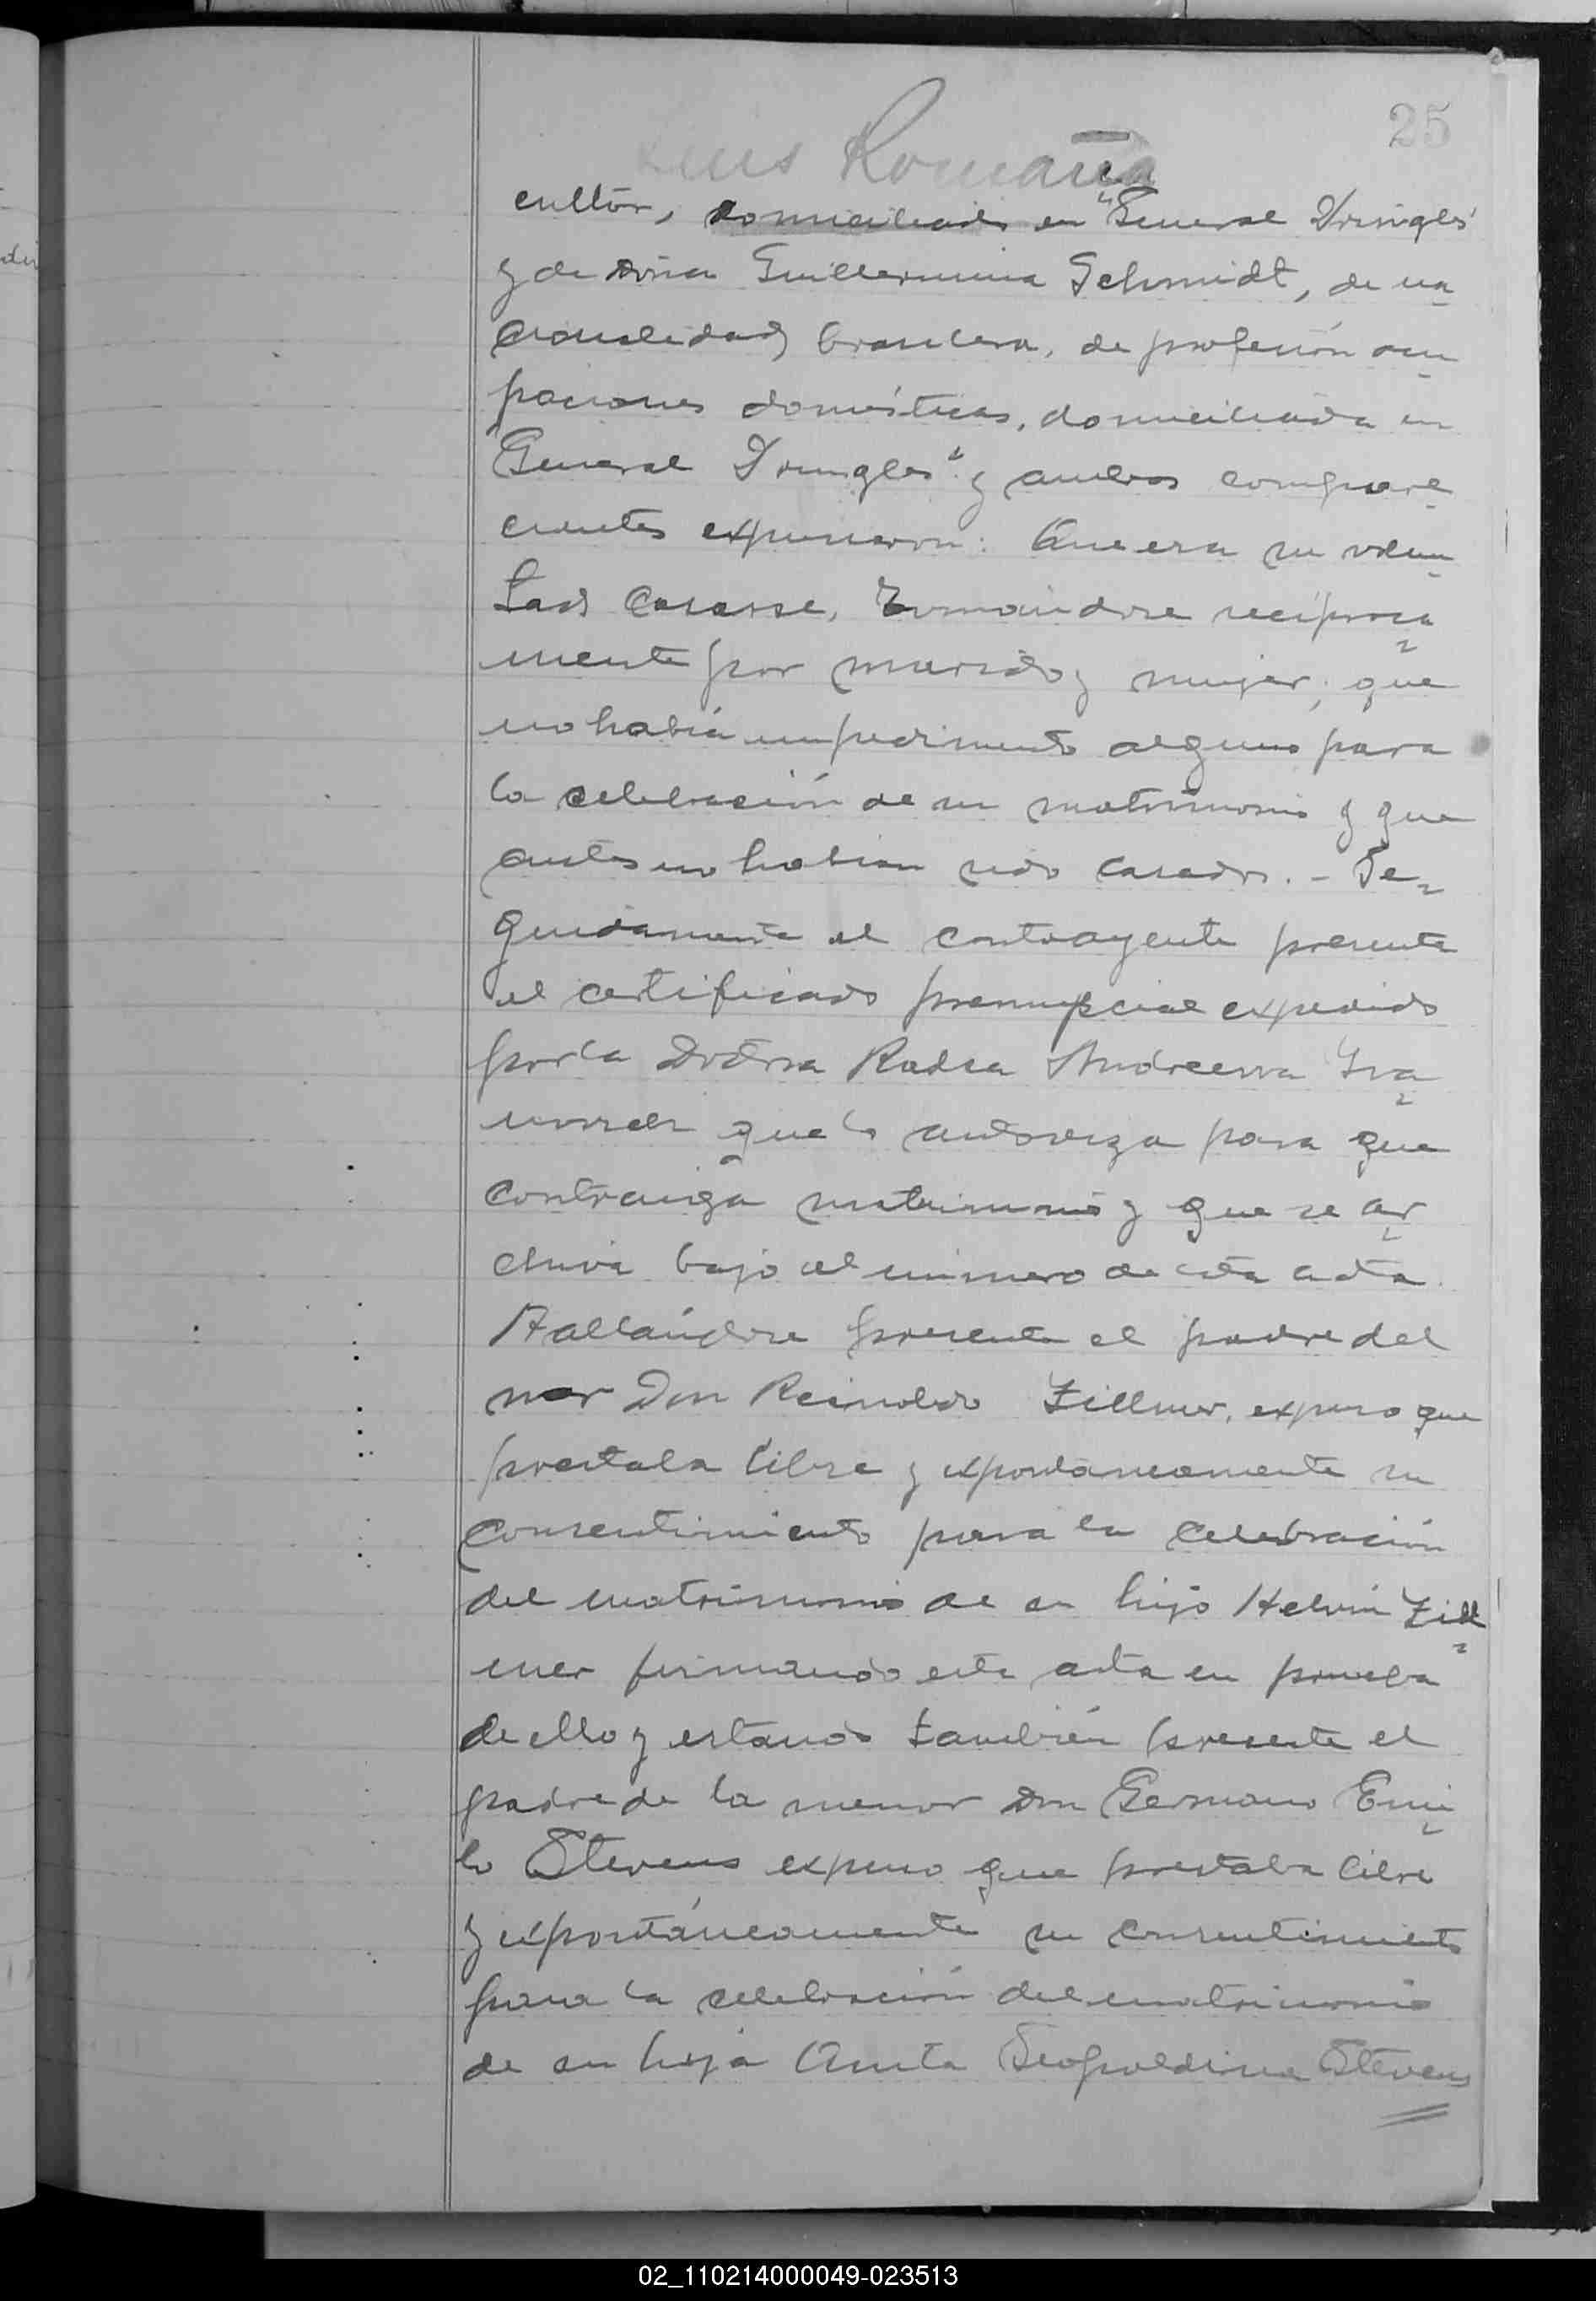 25
Luis Romaña
cultor, domiciliado en "General Pringles"
y de Doña Guillermina Schmidt, de na
cionalidad brasilera, de profesión ocu
paciones domésticas, domiciliada en
"General Pringles" y ambos compare
cientes expusieron: Que era su volun
tad casarse, tomándose recíproca
mente por marido y mujer; que
no había impedimento alguno para
la celebración de su matrimonio y que
antes no habían sido casados. - Se
guidamente el contrayente presenta
el certificado prenupcial expedido
por la Doctora Radca
que lo autoriza para que
contraiga matrimonio y que se ar
chiva bajo el número de esta acta.
Hallándose presente el padre del
nor Don Reinoldo Zillmer, expuso que
prestaba libre y expontaneamente su
consentimiento para la celebración
del matrimonio de su hijo Helvin Zill
mer firmando esta acta en prueba
de ello y estando también presente el
padre de la menor Don Germano Emi
lo Stevens expuso que prestaba libre
y expontáneamente su consentimiento
para la celebración del matrimonio
de su hija Anita Leopoldina Stevens
02_110214000049-023513